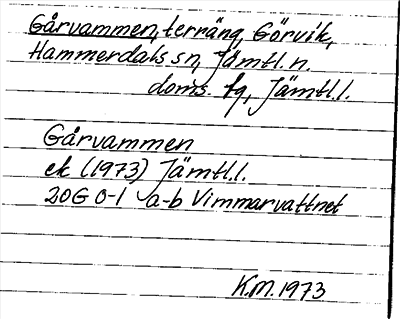 Gårvammen, terräng, Görvik,
Hammerdals sn, Jämtl. n.
doms. fq, Jämtl. l.
Gårvammen
ek (1973) Jämtl. l.
20G 0-1 a-b Vimmarvattnet
K.M. 1973